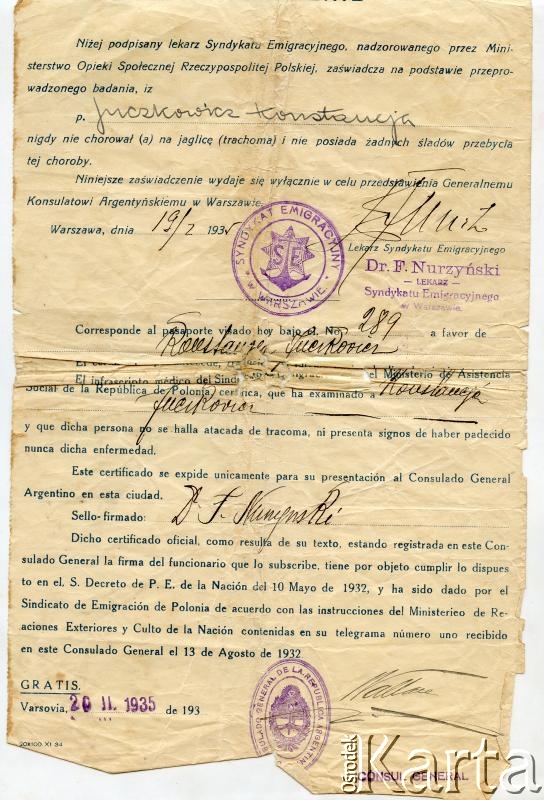 Niżej podpisany lekarz Syndykatu Emigracyjnego, nadzorowanego przez Mini-
sterstwo Opieki Społecznej Rzeczypospolitej Polskiej, zaświadcza na podstawie przepro-
wadzonego badania, iż
p. Juczkowicz Konstancja
nigdy nie chorował (a) na jaglicę (trachoma) i nie posiada żadnych śladów przebycia
tej choroby.
Niniejsze zaświadczenie wydaje się wyłącznie w celu przedstawienia Generalnemu
Konsulatowi Argentyńskiemu w Warszawie.
Warszawa, dnia 19/2 1935
SYNDYKAT EMIGRACYJNY
SE
W WARSZAWIE
Lekarz Syndykatu Emigracyjnego
Dr. F. Nurzyński
— LEKARZ —
Syndykatu Emigracyjnego
w Warszawie.
Corresponde al pasaporte visado hoy bajo el No. 289 a favor de
El infrascripto médico del el Ministerio de Asistencia
Social de la República de Polonia) certifica, que ha examinado a Konstancja
y que dicha persona no se halla atacada de tracoma, ni presenta signos de haber padecido
nunca dicha enfermedad.
Este certificado se expide unicamente para su presentación al Consulado General
Argentino en esta ciudad.
Sello-firmado: D. F. Nurzynski
Dicho certificado oficial, como resulta de su texto, estando registrada en este Con-
sulado General la firma del funcionario que lo subscribe, tiene por objeto cumplir lo dispues
to en el S. Decreto de P. E. de la Nación del 10 Mayo de 1932, y ha sido dado por el
Sindicato de Emigración de Polonia de acuerdo con las instrucciones del Ministerieo de Re-
aciones Exteriores y Culto de la Nación contenidas en su telegrama número uno recibido
en este Consulado General el 13 de Agosto de 1932.
GRATIS.
Varsovia, 20 II. 1935 de 193
SULADO GENERAL DE LA REPUBLICA ARGENTIN
CONSUL GENERAL
20X100 XI 34
Ośrodek
Karta